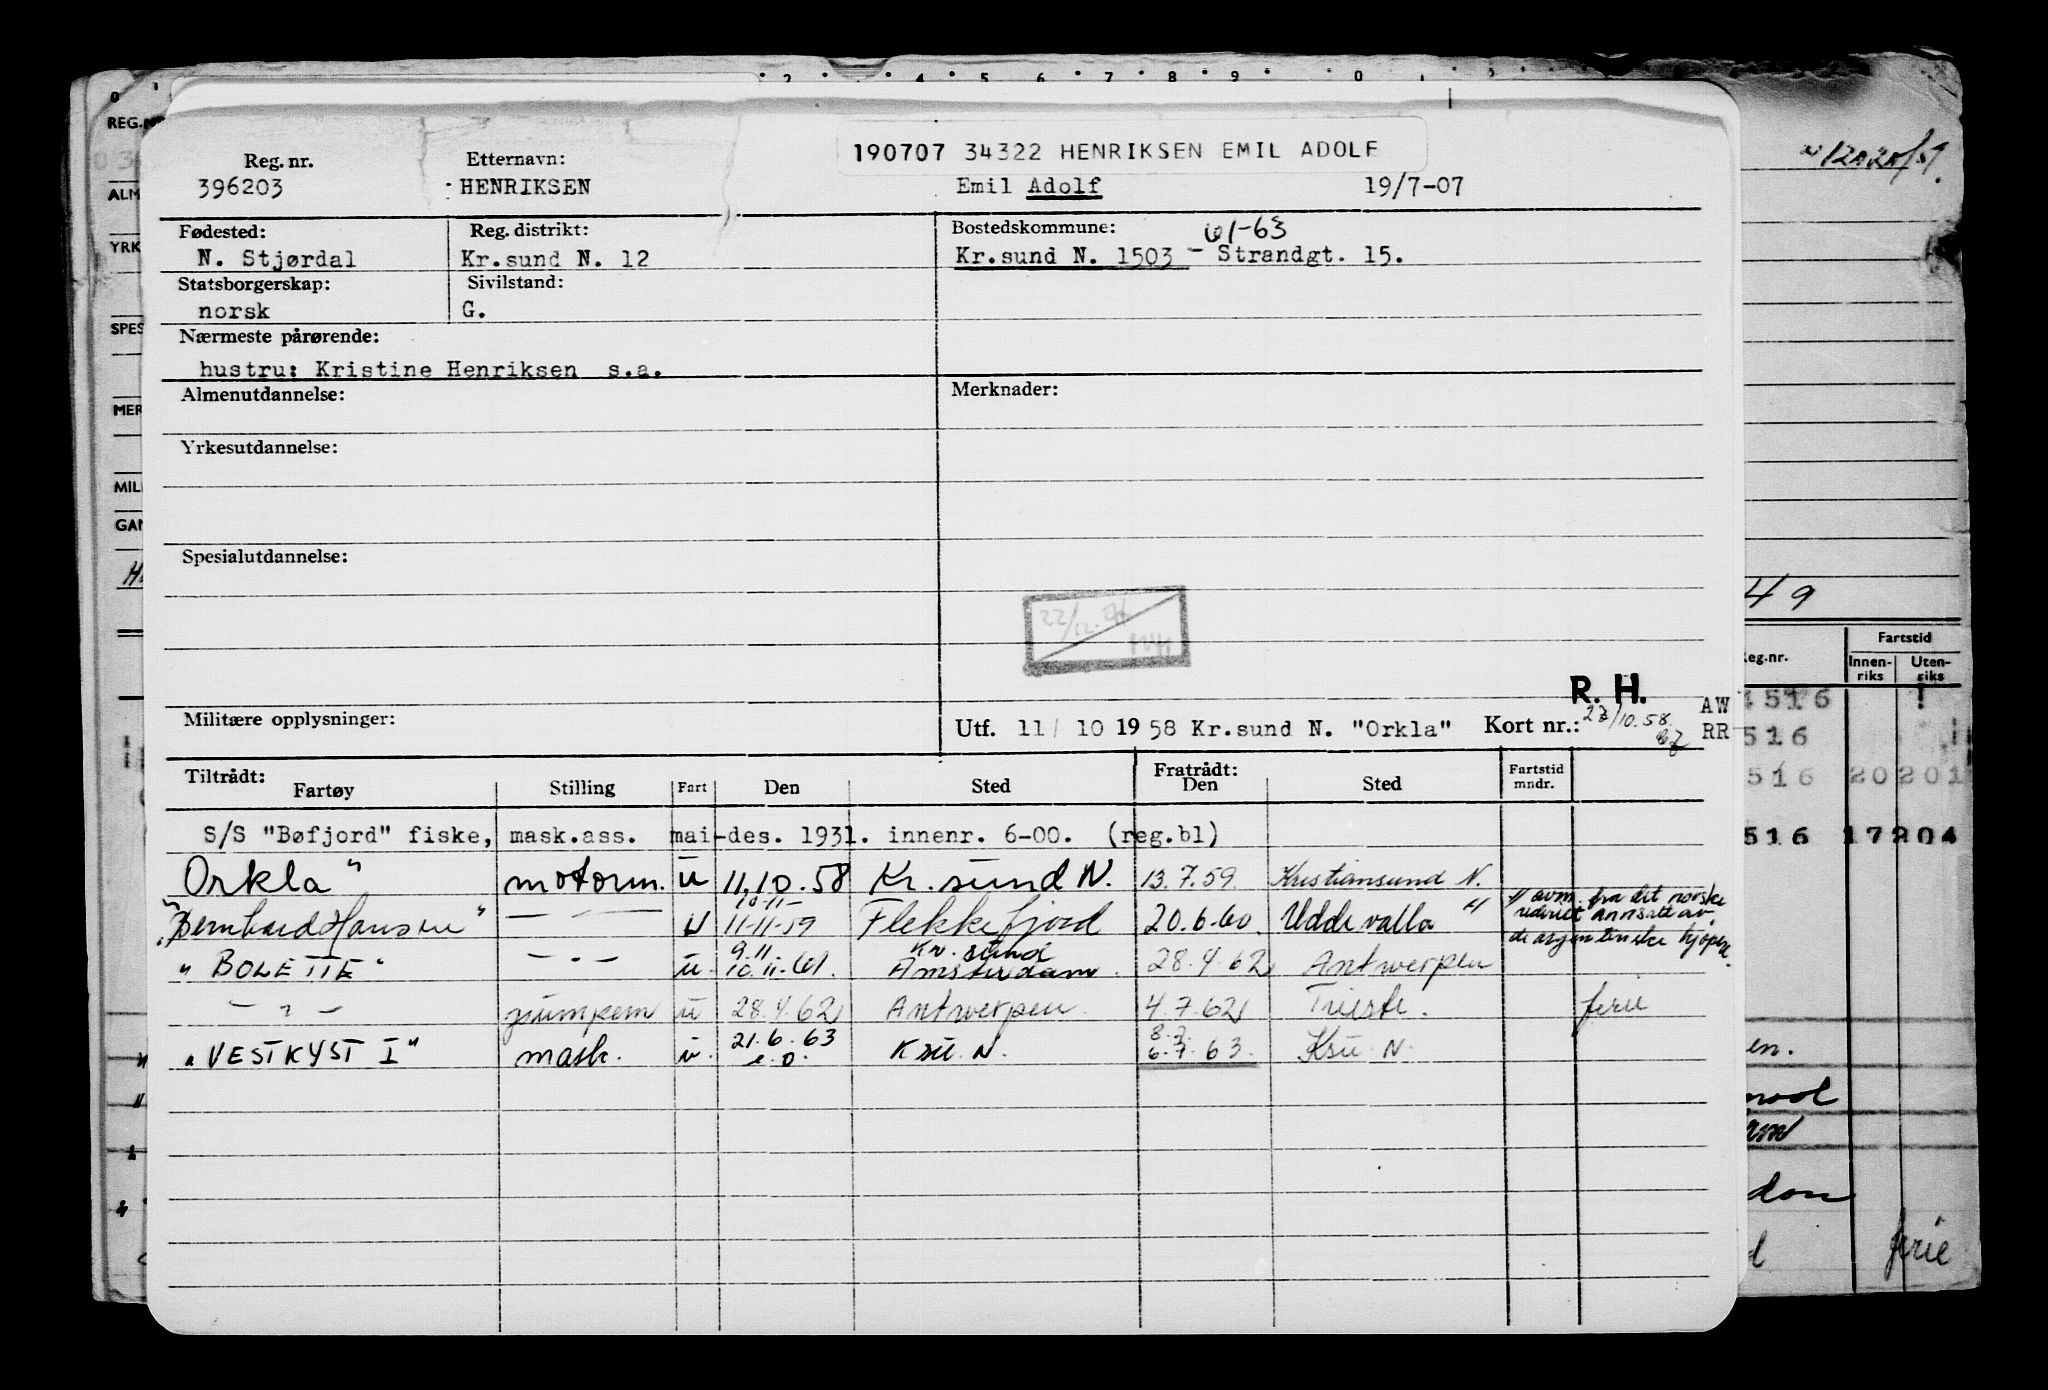 190707 34322 HENRIKSEN EMIL ADOLF
Reg. nr. Etternavn:
396203 HENRIKSEN Emil Adolf 19/7-07
Fødested: Reg. distrikt: Bostedskommune: 61-63
N. Stjørdal Kr.sund N. 12 Kr.sund N. 1503 - Strandgt. 15.
Statsborgerskap: Sivilstand:
norsk G.
Nærmeste pårørende:
hustru: Kristine Henriksen s.a.
Almenutdannelse: Merknader:
Yrkesutdannelse:
Spesialutdannelse:
R. H.
Militære opplysninger: Utf. 11/ 10 1958 Kr.sund N. "Orkla" Kort nr.: /10.58
AW
RR
Tiltrådt: Fratrådt: Fartstid
Fartøy Stilling Fart Den Sted Den Sted mndr.
S/S "Bøfjord" fiske, mask.ass. mai-des. 1931. innenr. 6-00. (reg.bl)
Orkla" motorm. u 11.10.58 Kr. sund N. 13.7.59. Kristiansund N.
10-11-
"Bernhard Hansen" -"- u 11-11-59 Flekkefjord 20.6.60. Uddevalla
avm. fra det norske
rederiet annsatt av
de argentinske kjøpere.
9.11. Kr. sund
"BOLETTE" -"- u. 10.11.61. Amsterdam. 28.4.62 Antwerpen
-"- pumpem u 28.4.62 Antwerpen 4.7.62 Trieste. ferie
21.6.63 8.7.
"VESTKYST I" mask. u. e.o. Ksu. N. 6.7.63. Ksu. N.
REG.NR
ALM
YRK
SPES
MER
MILI
GAN
49
Reg.nr. Fartstid
Innen-
riks Uten-
riks
4516
516
516 20201
516 17204
en.
don
ferie